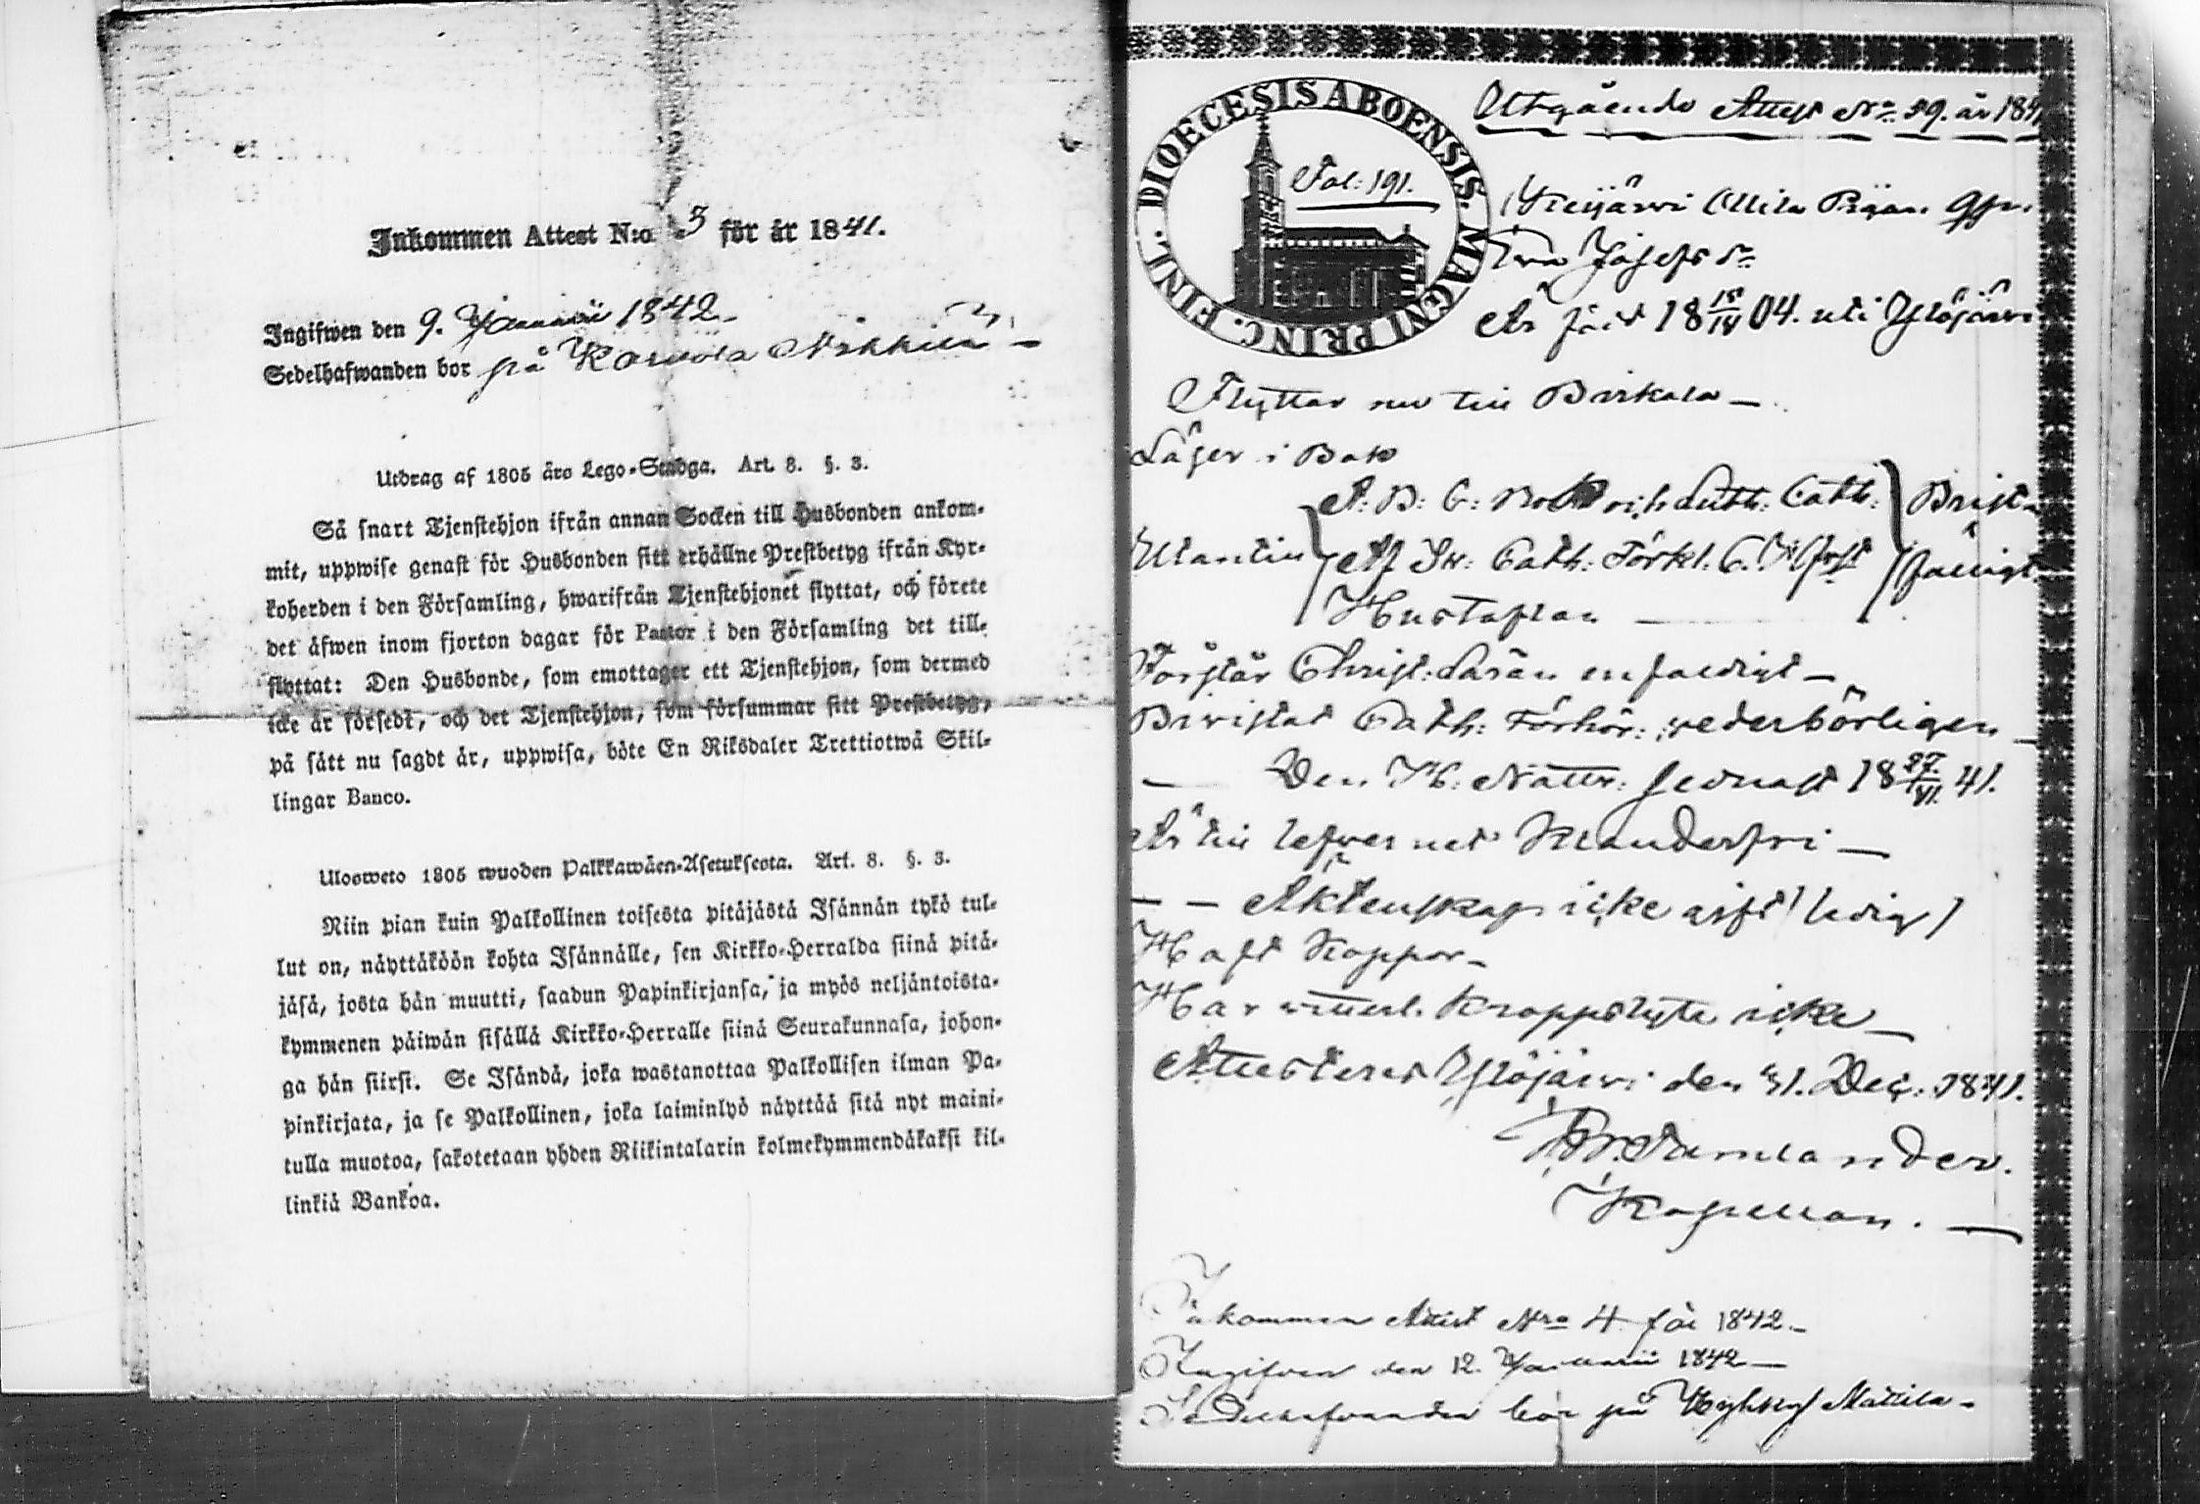 Inkommen Attest N:o 3 för år 1841.
Ingifwen den 9. Januarii 1842.
Sedelhafwanden bor på
Utdrag af 1805 års Lego-Stadga. Art. 8. §. 3.
Så snart Tjenstehjon ifrån annan Socken till Husbonden ankom-
mit, uppwise genast för Husbonden sitt erhållne Prestbetyg ifrån Kyr-
koherden i den Församling, hwarifrån Tjenstehjonet flyttat, och förete
det äfwen inom fjorton dagar för Pastor i den Församling det till-
flyttat: Den Husbonde, som emottager ett Tjenstehjon, som dermed
icke är försedt, och det Tjenstehjon, som försummar sitt Prestbetyg,
på sätt nu sagdt är, uppwisa, böte En Riksdaler Trettiotwå Skil-
lingar Banco.
Ulosweto 1805 wuoden Palkkawäen-Asetuksesta. Art. 8. §. 3.
Niin pian kuin Palkollinen toisesta pitäjästä Isännän tykö tul-
lut on, näyttäköön kohta Isännälle, sen Kirkko-Herralda siinä pitä-
jäsä, josta hän muutti, saadun Papinkirjansa, ja myös neljäntoista-
kymmenen päiwän sisällä Kirkko-Herralle siinä Seurakunnasa, johon-
ga hän siirsi. Se Isändä, joka wastanottaa Palkollisen ilman Pa-
pinkirjata, ja se Palkollinen, joka laiminlyö näyttää sitä nyt maini-
tulla muotoa, sakotetaan yhden Riikintalarin kolmekymmendäkaksi kil-
linkiä Bankoa.
DIOECESIS ABOENSIS. MAGNI PRINC. FINL.
Fol: 191.
Utgående Attest No 59. år 1841
Ollila Pigan
Josefs dr
Är född 18 15/IV 04. uti Ylöjärvi
Flyttar nu till Birkala —
Läser i Bok
A. B. C. Bok och Luth: Cath:
Utantill Af Sv: Cath: Förkl:
Hustaflan —
Förstår Christ: Läran enfaldigt —
Bivistat Cath: Förhör: vederbörligen —
— Den H. Nattv: sednast 18 27/VI. 41.
Är till lefvernet klanderfri —
— — Äktenskap icke ledig
Haft Koppor —
Har lyte icke —
Attesteras Ylöjärvi den 31. Dec: 1841.
Kapellan. —
Inkommen Attest Nro 4 för 1842 —
Ingifven den 12. Januarii 1842 —
Sedelhafvanden bor på Mattila —